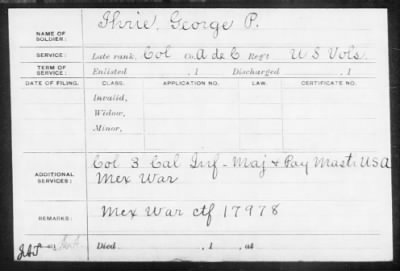 NAME OF SOLDIER: Ihrie, George P.
SERVICE: Late rank, Col Co. A de C Reg't U S Vols.
TERM OF SERVICE: Enlisted , 1 Discharged , 1
DATE OF FILING. CLASS. APPLICATION NO. LAW. CERTIFICATE NO.
Invalid,
Widow,
Minor,
ADDITIONAL SERVICES: Col 3 Cal Inf - Maj & Pay Mast. U S A
Mex War
REMARKS: Mex War ctf 17978
Died , 1 , at